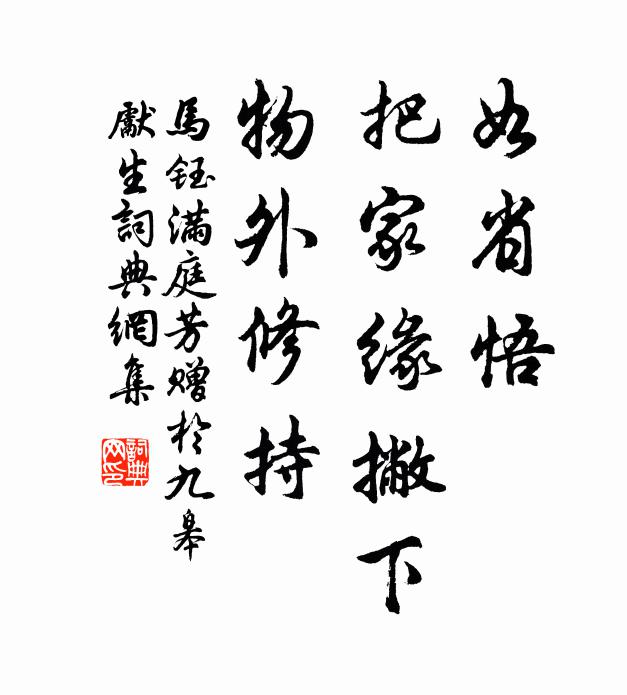 如省悟
把家缘撇下
物外修持
馬鈺满庭芳赠於九皋
獻生詞典網集
詞典
网印